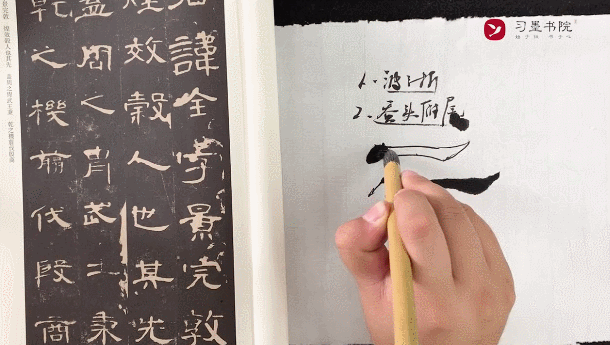 君諱全字景完敦
煌效穀人也其先
蓋周之胄武王秉
乾之機翦伐殷商
习墨书院
2、蚕头雁尾